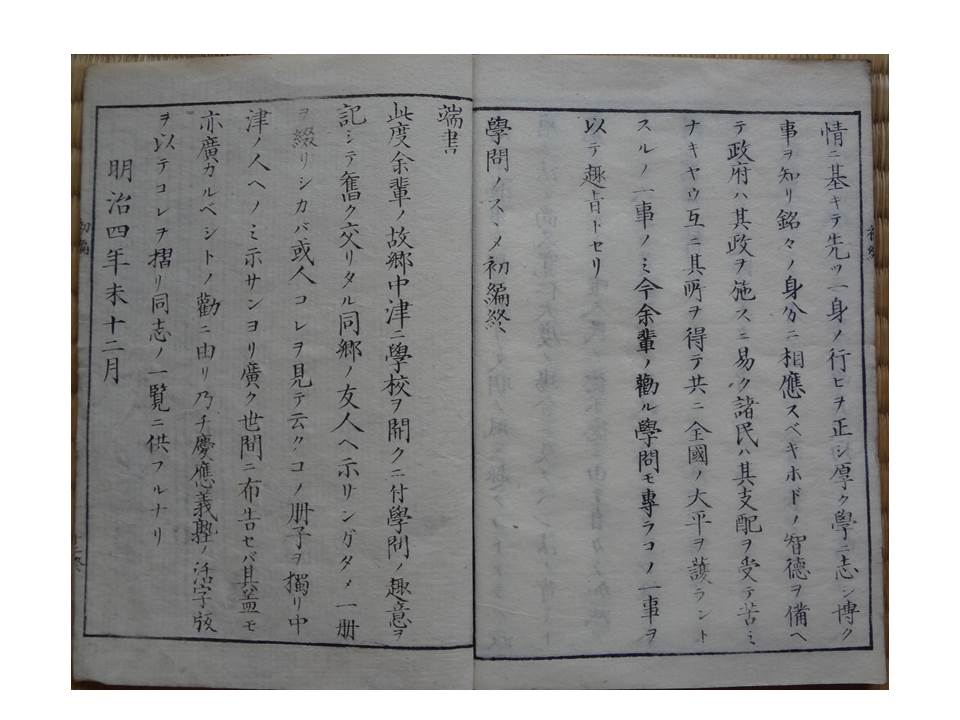 情ニ基キテ先ツ一身ノ行ヒヲ正シ厚ク學ニ志シ博ク
事ヲ知リ銘々ノ身分ニ相應スベキホドノ智德ヲ備ヘ
テ政府ハ其政ヲ施スニ易ク諸民ハ其支配ヲ受テ苦ミ
ナキヤウ互ニ其所ヲ得テ共ニ全國ノ大平ヲ護ラント
スルノ一事ノミ今余輩ノ勸ル學問モ專ラコノ一事ヲ
以テ趣旨トセリ
學問ノスヽメ初編終
端書
此度余輩ノ故鄕中津ニ學校ヲ開クニ付學問ノ趣意ヲ
記シテ舊ク交リタル同鄕ノ友人ヘ示サンガタメ一册
ヲ綴リシカバ或人コレヲ見テ云クコノ册子ヲ獨リ中
津ノ人ヘノミ示サンヨリ廣ク世間ニ布告セバ其益モ
亦廣カルベシトノ勸ニ由リ乃チ慶應義塾ノ活字版
ヲ以テコレヲ摺リ同志ノ一覽ニ供フルナリ
明治四年未十二月
初編